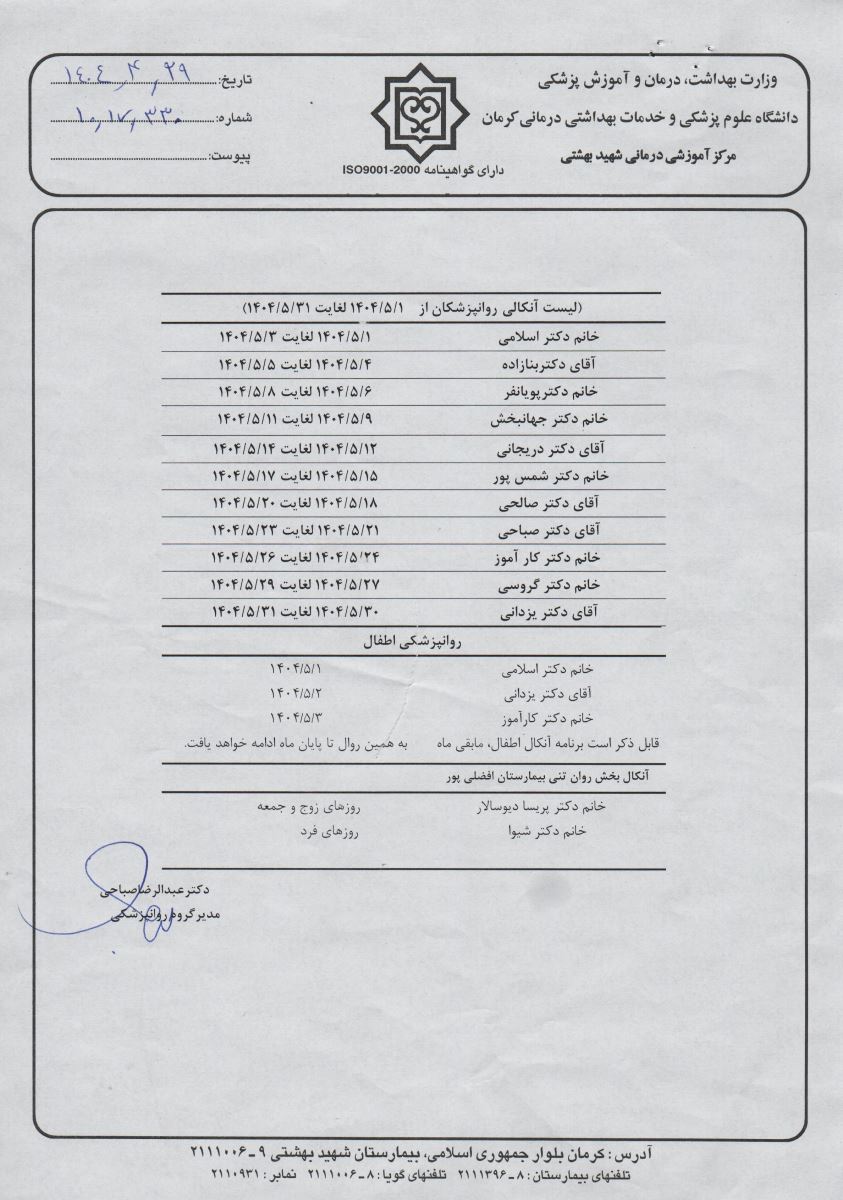 وزارت بهداشت، درمان و آموزش پزشکی
دانشگاه علوم پزشکی و خدمات بهداشتی درمانی کرمان
مرکز آموزشی درمانی شهید بهشتی
دارای گواهینامه ISO9001-2000
تاریخ: ۱۴۰۴٫۴٫۲۹
شماره: ۱۰٫۱۷٫۳۳۰
پیوست:
(لیست آنکالی روانپزشکان از ۱۴۰۴/۵/۱ لغایت ۱۴۰۴/۵/۳۱)
خانم دکتر اسلامی ۱۴۰۴/۵/۱ لغایت ۱۴۰۴/۵/۳
آقای دکتربنازاده ۱۴۰۴/۵/۴ لغایت ۱۴۰۴/۵/۵
خانم دکترپویانفر ۱۴۰۴/۵/۶ لغایت ۱۴۰۴/۵/۸
خانم دکتر جهانبخش ۱۴۰۴/۵/۹ لغایت ۱۴۰۴/۵/۱۱
آقای دکتر دریجانی ۱۴۰۴/۵/۱۲ لغایت ۱۴۰۴/۵/۱۴
خانم دکتر شمس پور ۱۴۰۴/۵/۱۵ لغایت ۱۴۰۴/۵/۱۷
آقای دکتر صالحی ۱۴۰۴/۵/۱۸ لغایت ۱۴۰۴/۵/۲۰
آقای دکتر صباحی ۱۴۰۴/۵/۲۱ لغایت ۱۴۰۴/۵/۲۳
خانم دکتر کار آموز ۱۴۰۴/۵/۲۴ لغایت ۱۴۰۴/۵/۲۶
خانم دکتر گروسی ۱۴۰۴/۵/۲۷ لغایت ۱۴۰۴/۵/۲۹
آقای دکتر یزدانی ۱۴۰۴/۵/۳۰ لغایت ۱۴۰۴/۵/۳۱
روانپزشکی اطفال
خانم دکتر اسلامی ۱۴۰۴/۵/۱
آقای دکتر یزدانی ۱۴۰۴/۵/۲
خانم دکتر کارآموز ۱۴۰۴/۵/۳
قابل ذکر است برنامه آنکال اطفال، مابقی ماه به همین روال تا پایان ماه ادامه خواهد یافت.
آنکال بخش روان تنی بیمارستان افضلی پور
خانم دکتر پریسا دیوسالار روزهای زوج و جمعه
خانم دکتر شیوا روزهای فرد
دکترعبدالرضاصباحی
مدیرگروه روانپزشکی
آدرس : کرمان بلوار جمهوری اسلامی، بیمارستان شهید بهشتی ۹ ـ ۲۱۱۱۰۰۶
تلفنهای بیمارستان : ۸ ـ ۲۱۱۱۳۹۶ تلفنهای گویا : ۸ ـ ۲۱۱۱۰۰۶ نمابر : ۲۱۱۰۹۳۱